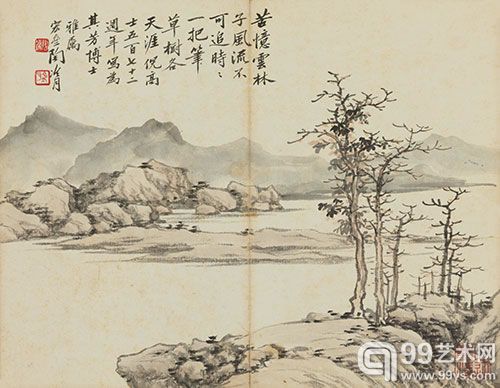 苦憶雲林
子風流不
可追時〻
一把筆
草樹各
天涯倪高
士五百七十二
週年寫為
其芳博士
雅屬
99艺术网
www.99ys.com